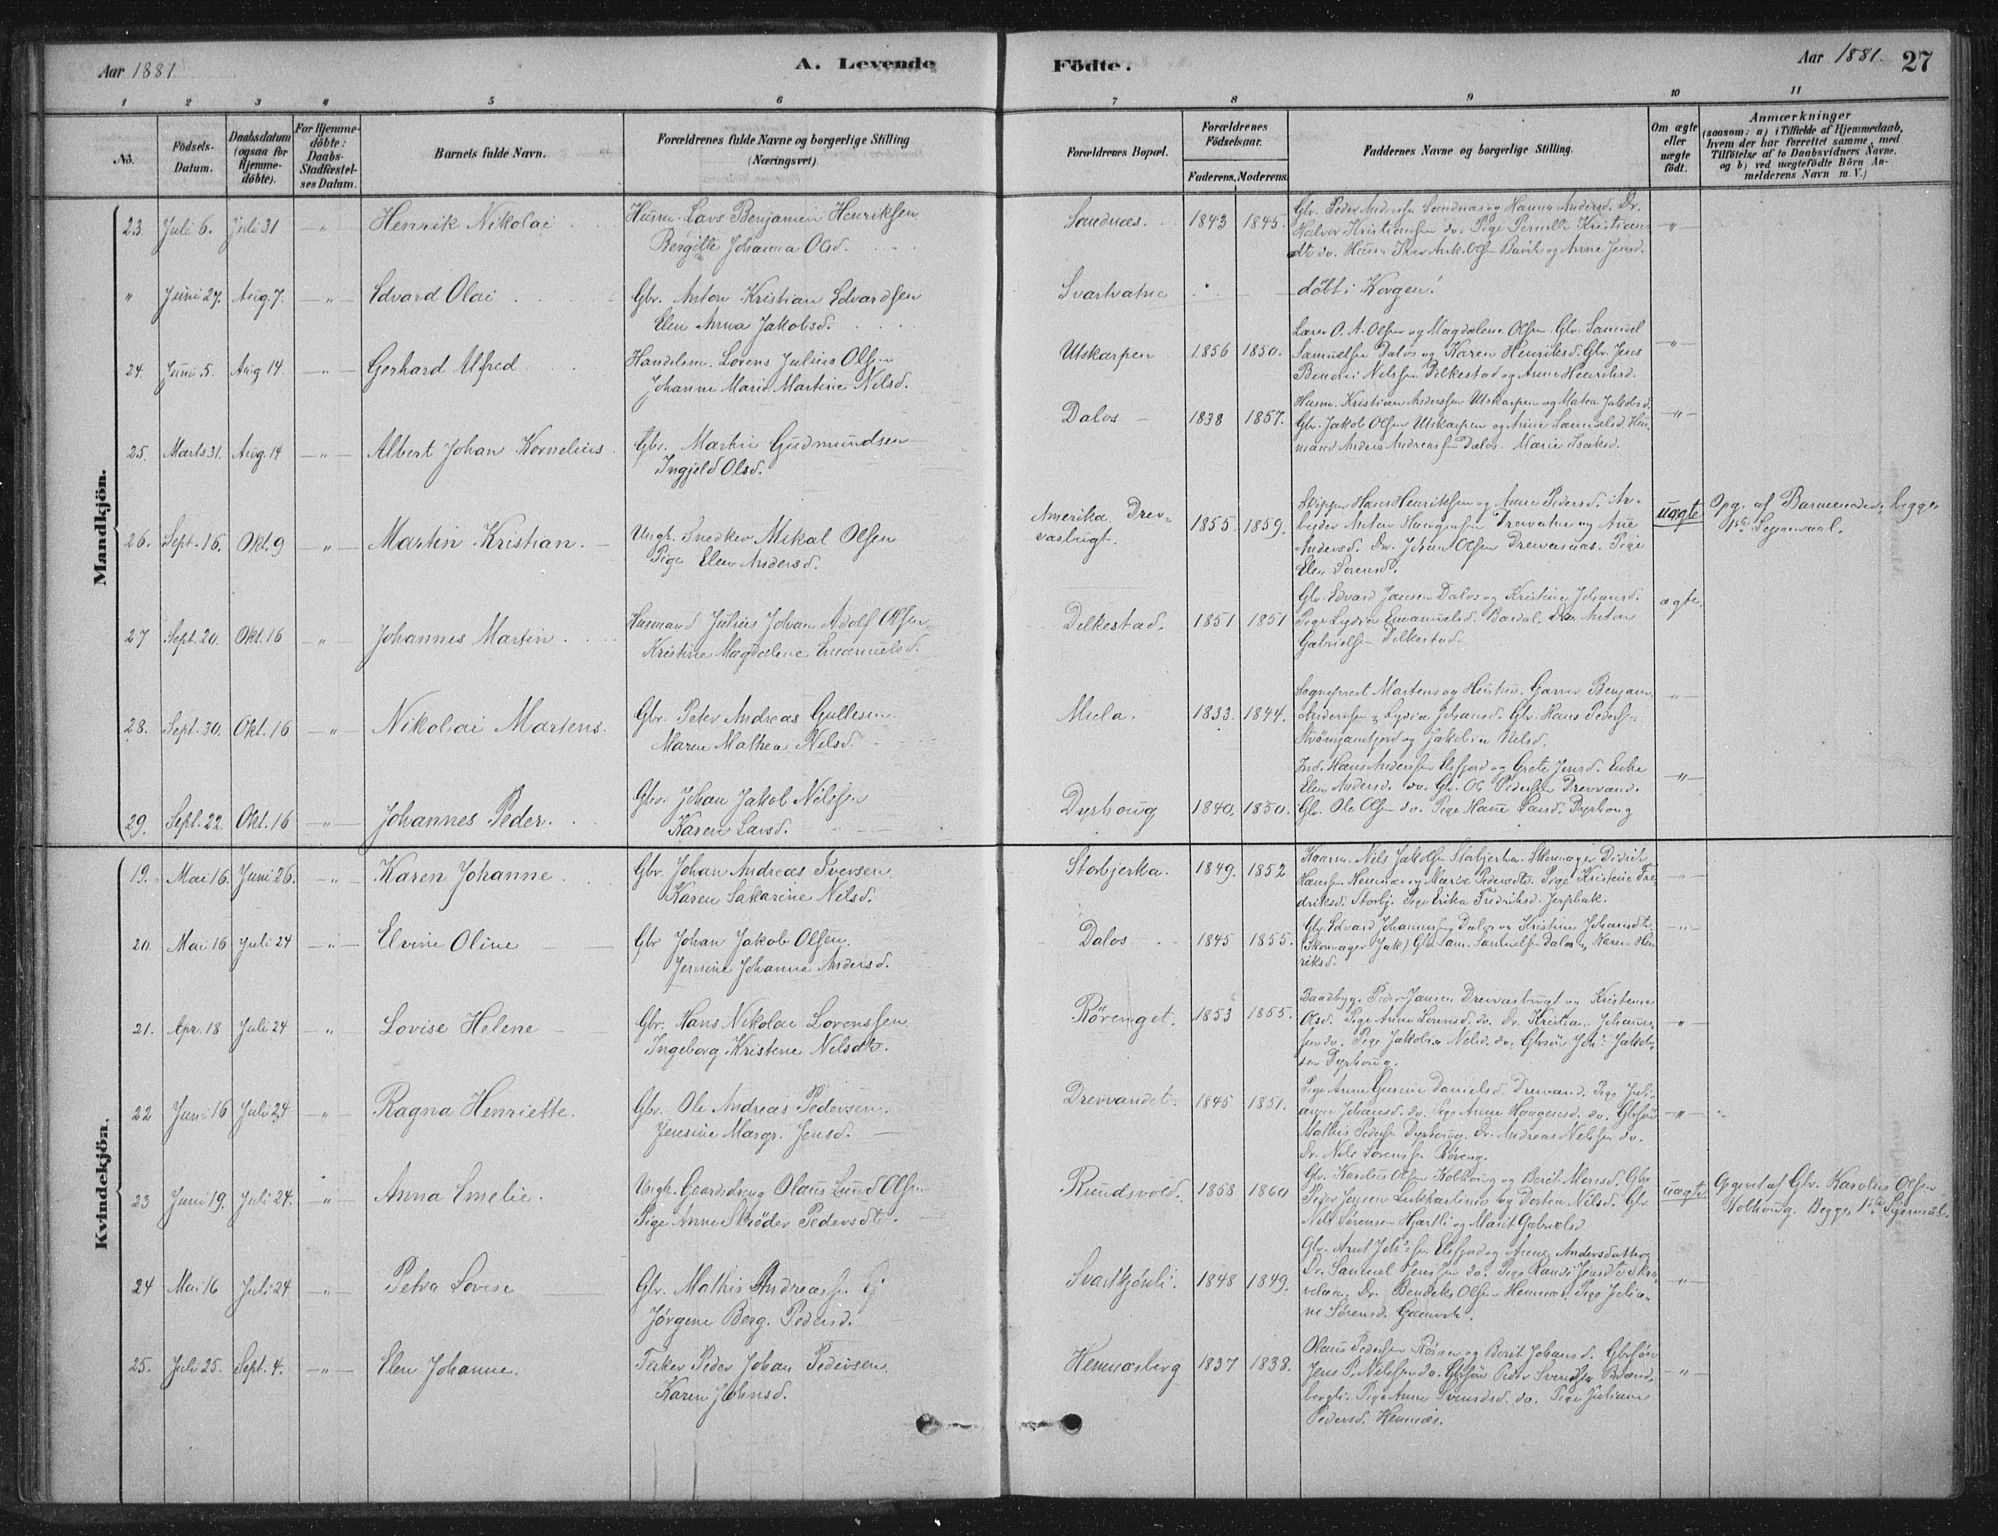 Aar 1881.
A. Levende
Födte.
Aar 1881.
27
1 2 3 4 5 6 7 8 9 10 11
No.
Födsels-
Datum.
Daabsdatum
(ogsaa for
Hjemme-
döbte).
For Hjemme-
döbte:
Daabs-
Stadfæstel-
ses Datum.
Barnets fulde Navn.
Forældrenes fulde Navne og borgerlige Stilling
(Næringsvei).
Forældrenes Bopæl.
Forældrenes
Födselsaar.
Faderens. Moderens.
Faddernes Navne og borgerlige Stilling.
Om ægte
eller
uægte
födt.
Anmærkninger
(saasom: a) i Tilfælde af Hjemmedaab,
hvem der har forrettet samme, med
Tilföielse af to Daabsvidners Navne.
og b) ved uægtefödte Börn An-
melderens Navn m. V.)
Mandkjön.
23. Juli 6. Juli 31 -"- Henrik Nikolai
Husm. Lars Benjamin Henriksen
Bergitte Johanna Olsd.
Sandnæs. 1843 1845.
Glr. Peder Anderssen Sandnæs og Hanna Andersd. Dr.
Halvor Kristiansen do. Pige Pernille Kristians-
-"-
" Juni 27. Aug. 7. -"- Edvard Olai
Gbr. Anton Kristian Edvardsen
Elen Anna Jakobsd.
Svartvatne
döbt i Korgen!
24. Juni 5. Aug 14. -"- Gerhard Alfred
Handelsm. Lorens Julius Olsen
Johanne Marie Martine Nilsd.
Utskarpen 1856 1850.
Lærer O. A. Olsen og Magdalene Olsen. Gbr. Samuel
Samuelsen Dalos og Karen Henriksd. Gbr. Jens
Nilssen Dilkestad og Anne Henriksd.
-"-
25. Marts 31. Aug 14 -"- Albert Johan Kornelius.
Gbr. Martin Gudmundsen
Ingjeld Olsd.
Dalos 1838 1857.
Husm. Kristian Anderssen Utskarpen og Matea Jakobsd.
Gbr. Jakob Olsen Utskarpen og Anne Samuelsd. Hus-
mand Anders Andreassen Dalos. Marie Isaksd.
-"-
26. Sept. 16. Okt. 9 " Martin Kristian.
Ungk. Snedker Mikal Olsen
Pige Elen Andersd.
Amerika. Drev-
vasbugt. 1855. 1859.
Skipper Hans Henriksen og Anne Pedersd. Ar-
bejder Anton Drevatne og Ane
Andersd. Dr. Johan Olsen Drevasnæs. Pige
Elen Sorensd.
uægte
Opg. af Barnemoder, begges
1ste Lejermaal.
27 Sept. 20. Okt. 16 " Johannes Martin.
Husmand Julius Johan Adolf Olsen
Kristine Magdalene Emanuelsd.
Dilkestad. 1851 1851
Gbr. Edvard Jansen Dalos og Kristine Johansd.
Pige Lydia Emanuelsd. Bardal. Anton
Gabrielsen Dilkestad.
ægte
28. Sept. 30. Okt. 16 -"- Nikolai Martens.
Gbr. Peter Andreas Gullesen
Maren Mathea Nilsd.
Miela. 1833. 1844.
Sogneprest Martens og Hustru. Garver Benjam.
Anderssen og Lydia Johansd. Gbr. Hans Pedersen
og Jakobia Nilsd.
-"-
29. Sept. 22. Okt. 16 -"- Johannes Peder.
Gbr. Johan Jakob Nilssen
Karen Larsd.
Dyrhoug 1840. 1850.
Ind. Hans Anderssen Elsfjord og Grete Jensd. Enke
Elen Andersd. do. Gbr. Ol. Pedersen Drevvand.
Gbr. Ole Olsen do. Pige Hanne Larsd. Dyrhoug
-"-
Kvindekjön.
19. Mai 16. Juni 26. -"- Karen Johanne
Gbr. Johan Andreas Iversen
Karen Sakarine Nilsd.
Storbjerka. 1849. 1852
Kaarm. Nils Jakobsen Storbjerka. Skomager Didrik
Hanssen Hemnæs og Marie Pedersdt. Pige Kristine Fre-
driksd. Storbj. Pige Erika Fredriksd. Jerpbak.
-"-
20. Mai 16 Juli 24 -"- Elvine Oline
Gbr Johan Jakob Olsen.
Jensine Johanne Andersd.
Dalos 1845 1855.
Gbr. Edvard Johannsen Dalos og Kristine Johansdt.
(Skomager Jak) Gbr. Sam. Samuelsen Dalos og Karen Hen-
riksd.
-"-
21. Apr. 18 Juli 24 -"- Lovise Helene
Gbr. Hans Nikolai Lorenssen
Ingeborg Kristene Nilsdt.
Rörenget. 1853 1855.
Baadbyg. Peder Jansen Drevasbugt og Kristense
Olsd. Pige Anne Lorensd. do. Dr. Kristian Johans-
sen do. Pige Jakobia Nilsd. do. Gbrsön Joh. Jakob-
sen Dyrhoug.
-"-
22 Juni 16 Juli 24 " Ragna Henriette.
Gbr. Ole Andreas Pedersen.
Jensine Margr. Jensd.
Drevvandet. 1845 1851.
Pige Anne Gurine Danielsd. Drevvand. Pige Juli-
anne Johansd. do. Pige Anne Haagensd. do. Gbrsön
Mathis Pedersen Dyrhoug. Dr. Andreas Nilssen do.
Dr. Nils Lorenssen Röreng.
-"-
23 Juni 19. Juli 24. " Anna Emelie.
Ungk. Gaardsdreng Olaus Lund Olsen
Pige Anne Bröder Pedersdt.
Rundsvold. 1858 1860
Gbr. Karolius Olsen Kobhoug og Berit Monsd. Gbr
Peder Jensen og Dorten Nilsd. Gbr.
Nils Sörensen Hjartli og Marit Gabrielsd
uægte
Opgivet af Gbr. Karolius Olsen
Kobhoug. Begges 1ste Lejermaal.
24 Mai 16 Juli 24 " Petra Lovise
Gbr. Mathis Andreassen
Jørgine Berg. Pedersd.
Svartkjønli. 1848 1849.
Gbr. Arnt Elsfjord og Anne Andersdatter
Dr. Samuel Jenssen do. Pige Randi Jensdt.
Dr. Bendiks Olsen Hemnæs. Pige Julia-
ne Sörensd.
-"-
25. Juli 25. Sept. 4. -"- Elen Johanne.
Fisker Peder Johan Pedersen
Karen Johnsd.
Hemnæsberg 1837 1838.
Olaus Pedersen og Berit Johansd. Gbrsön
Jens P. Nilssen do. Gbrsön Peder Svendsen Brænd-
bergli. Pige Anne Svendsd. do. Pige Juliane
Pedersd. Hemnæs.
-"-